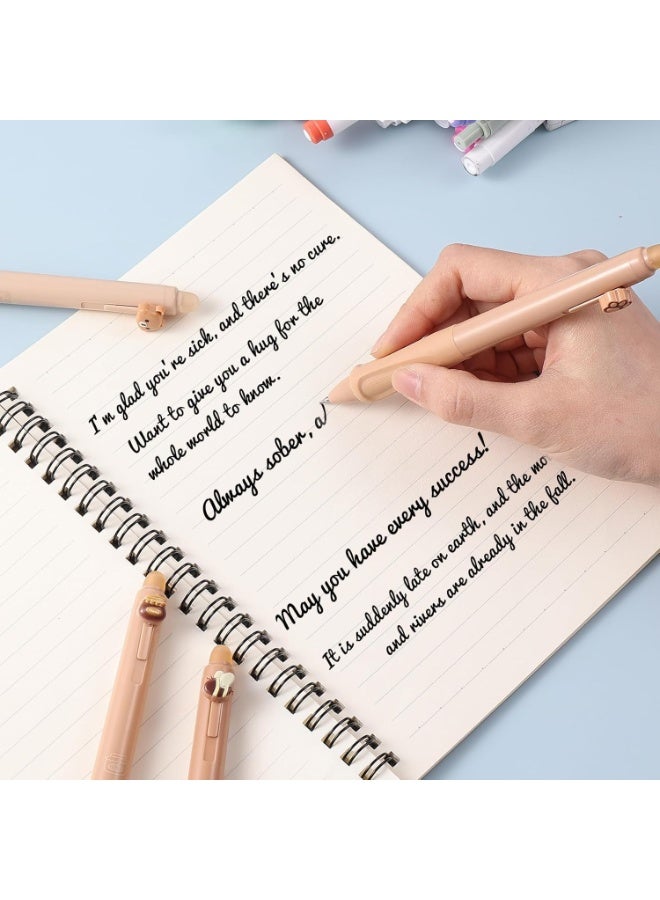 I'm glad you're sick, and there's no cure.
Want to give you a hug for the
whole world to know.
Always sober, a
May you have every success!
It is suddenly late on earth, and the mo
and rivers are already in the fall..